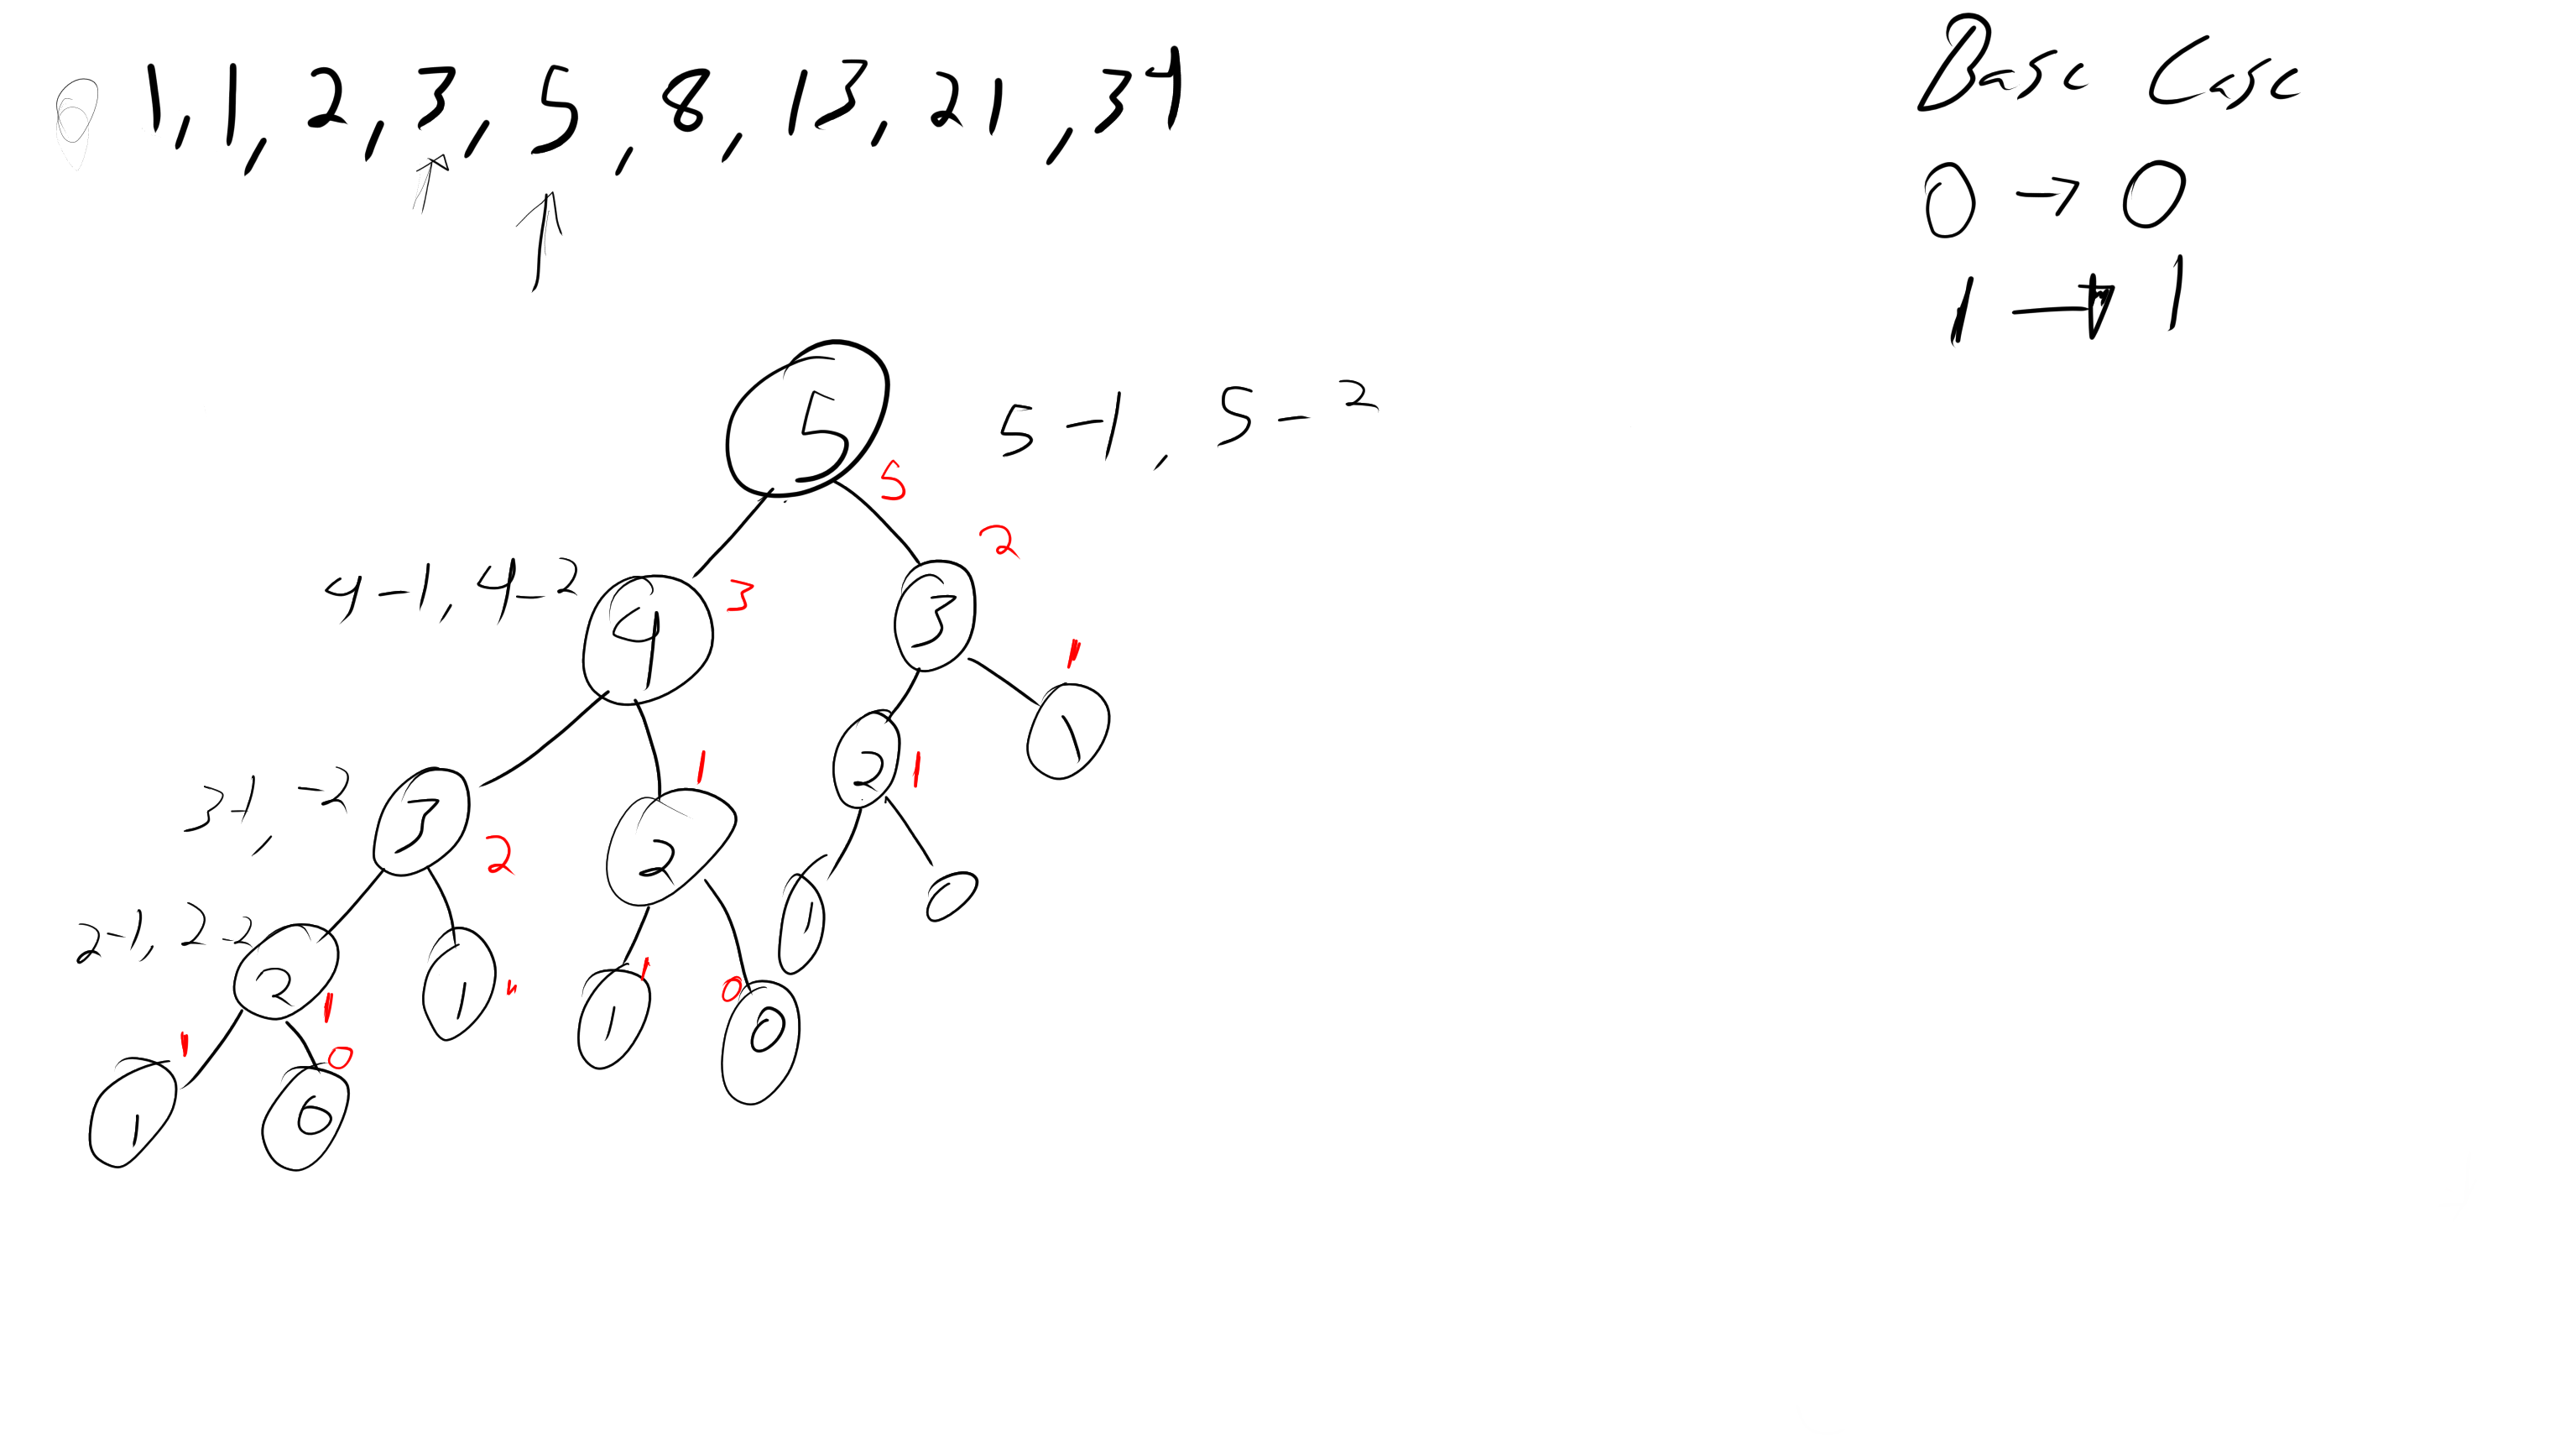 0 1, 1, 2, 3, 5, 8, 13, 21, 34
Base Case
0 → 0
1 → 1
5
5-1, 5-2
5
2
4-1, 4-2
4
3
3
1
1
3-1, -2
3
2
1
2
2
1
2-1, 2-2
2
1
1
1
0
1
1
0
1
0
1
0
1
0